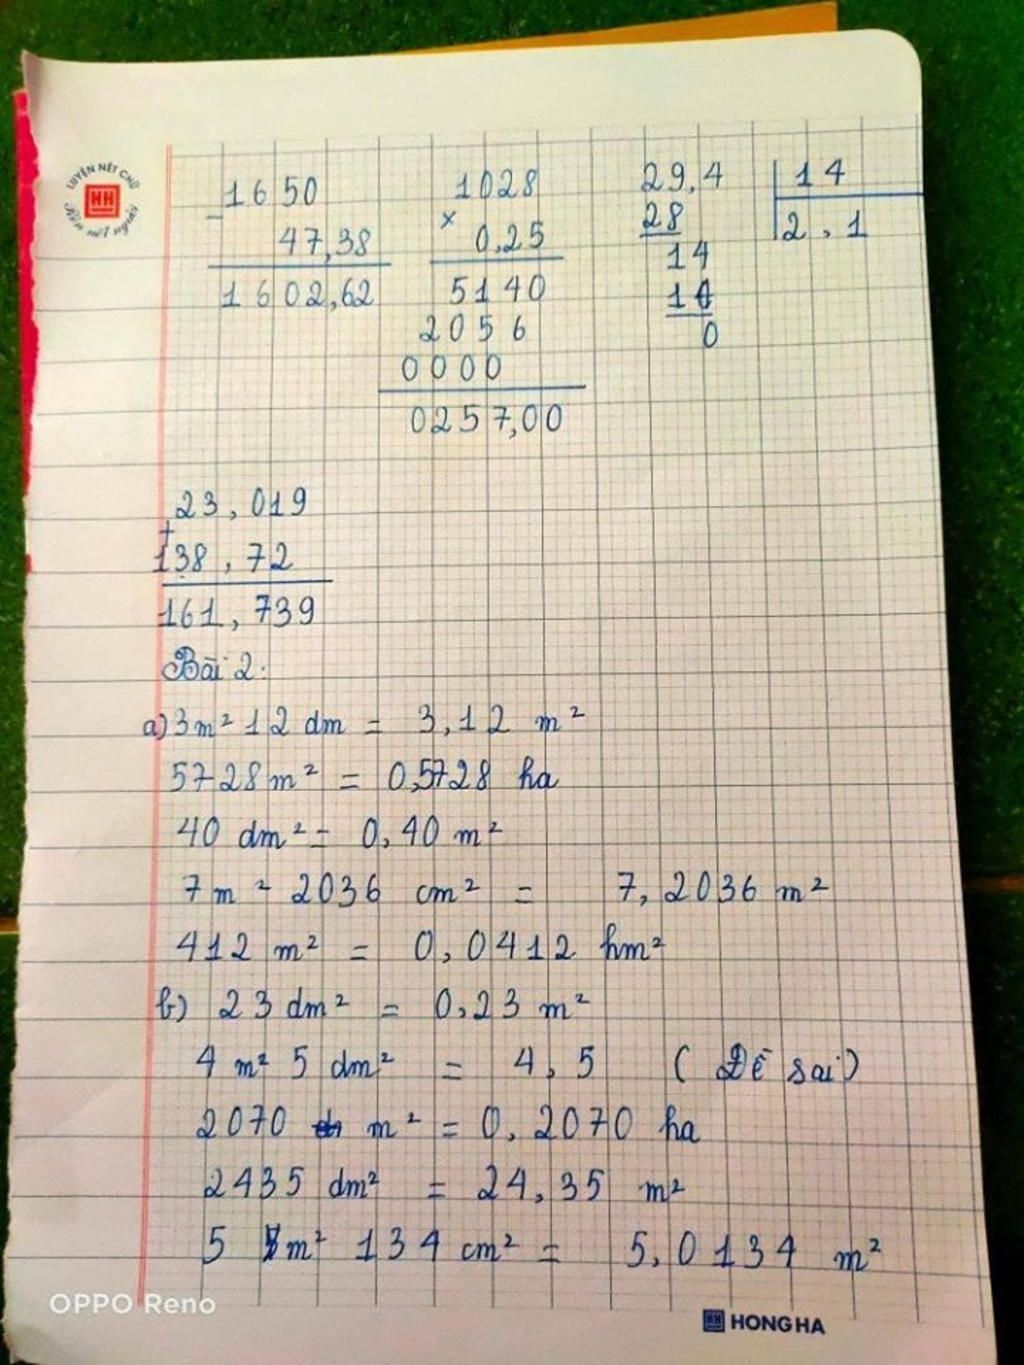 LUYỆN NÉT CHỮ
HH
Rèn nết người
1650
-
47,38
1602,62
1028
×
0,25
5140
2056
0000
0257,00
29,4 14
28 2,1
14
14
0
23,019
+
138,72
161,739
Bài 2:
a) 3m² 12 dm = 3,12 m²
5728 m² = 0,5728 ha
40 dm² = 0,40 m²
7 m² 2036 cm² = 7,2036 m²
412 m² = 0,0412 hm²
b) 23 dm² = 0,23 m²
4 m² 5 dm² = 4,5 (Đề sai)
2070 m² = 0,2070 ha
2435 dm² = 24,35 m²
5 m² 134 cm² = 5,0134 m²
OPPO Reno
HH HONG HA